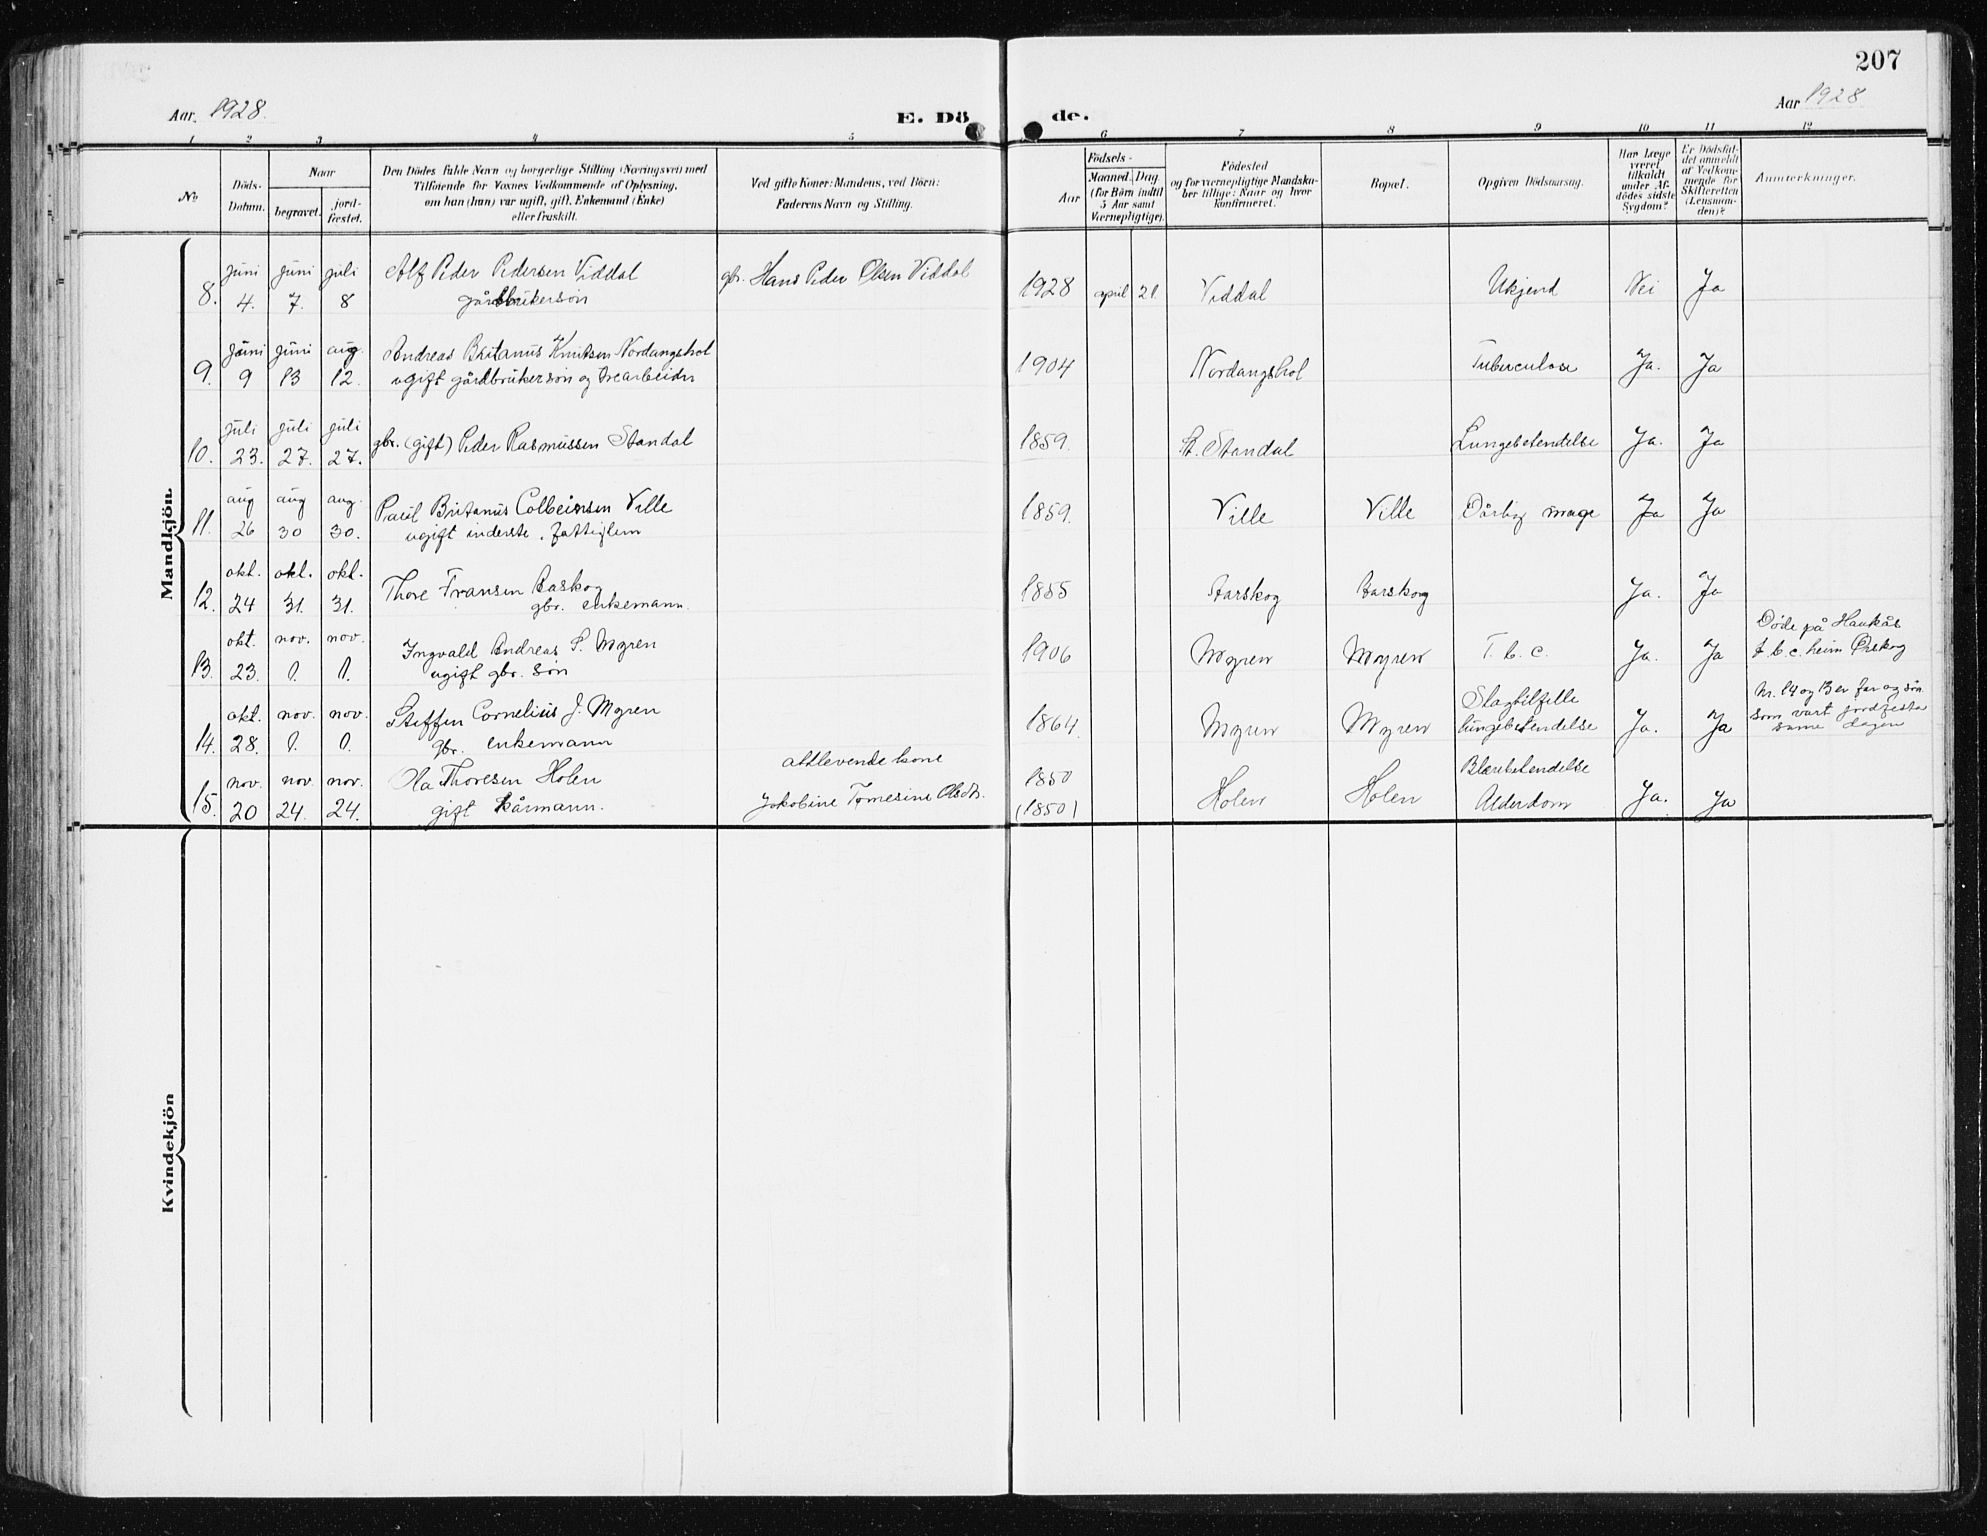 207
Aar. 1928.
E. Dö
de.
Aar 1928
1 2 3 4 5 6 7 8 9 10 11 12
No
Döds-Datum.
Naar
begravet.
jord-fæstet.
Den Dödes fulde Navn og borgerlige Stilling (Næringsvei) med
Tilföiende for Voxnes Vedkommende af Oplysning,
om han (hun) var ugift, gift, Enkemand (Enke)
eller fraskilt.
Ved gifte Koner: Mandens, ved Börn:
Faderens Navn og Stilling.
Födsels-
Aar
Maaned. Dag.
(for Börn indtil
5 Aar samt
Værnepligtige).
Födested
og for værnepligtige Mandska-
ber tillige: Naar og hvor
konfirmeret.
Bopæl.
Opgiven Dödsaarsag.
Har Læge
været
tilkaldt
under Af-
dödes sidste
Sygdom?
Er Dödsfal-
det anmeldt
af Vedkom-
mende for
Skifteretten
(Lensman-
den)?
Anmerkninger.
Mandkjön.
juni juni juli Alf Peder Pedersen Viddal gbr. Hans Peder Olsen Viddal
8. 4. 7. 8 gårdbrukersön 1928 april 21. Viddal Ukjend Nei Ja
juni juni aug. Andreas Britanus Knutsen Nordangshol
9. 9 13 12. ugift gårdbrukersön og 1904 Nordangshol Tuberculose Ja. Ja
juli juli juli
10. 23. 27. 27. gbr. (gift) Peder Rasmussen Standal 1859. St. Standal Lungebetendelse Ja. Ja
aug aug aug. Paul Britanus Colbeinsen Ville
11. 26 30 30. ugift inderste, fattiglem 1859. Ville Ville Dårlig mage Ja Ja
okt. okt. okt. Thore Fransen
12. 24 31. 31. gbr. enkemann. 1855 Ja. Ja
okt. nov. nov. Ingvald Andreas S. Myren
13. 23. 1. 1. ugift gbr. sön 1906 Myren Myren T. b. c. Ja. Ja Döde på Haukås
t. b. c. heim Örskog
okt. nov. nov. Steffen Cornelius J. Myren
14. 28. 1. 1. gbr. enkemann 1864. Myren Myren Slagtilfelle
lungebetendelse Ja. Ja Nr. 14 og 13 er far og sön
som vart jordfesta
same dagen
nov. nov nov. Ola Thoresen Holen attlevende kone
15. 20 24. 24. gift kårmann. Jakobine Tomesine Olsdtr. 1850
(1850) Holen Holen Blærebetendelse
Alderdom Ja. Ja
Kvindekjön